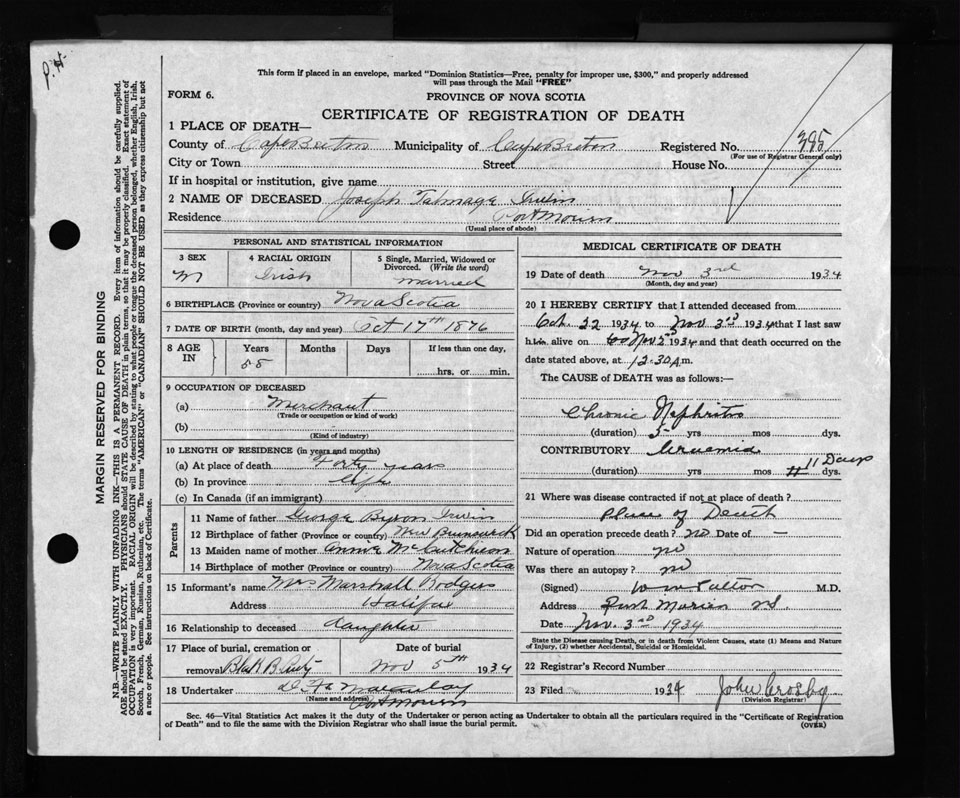 P.H.
This form if placed in an envelope, marked "Dominion Statistics—Free, penalty for improper use, $300," and properly addressed
will pass through the Mail "FREE"
FORM 6.
PROVINCE OF NOVA SCOTIA
CERTIFICATE OF REGISTRATION OF DEATH
1 PLACE OF DEATH—
County of Cape Breton Municipality of Cape Breton Registered No. 395
(For use of Registrar General only)
City or Town Street House No.
If in hospital or institution, give name
2 NAME OF DECEASED Joseph Talmage Irwin
Residence Port Morien
(Usual place of abode)
PERSONAL AND STATISTICAL INFORMATION
3 SEX 4 RACIAL ORIGIN 5 Single, Married, Widowed or Divorced. (Write the word)
M Irish married
6 BIRTHPLACE (Province or country) Nova Scotia
7 DATE OF BIRTH (month, day and year) Oct 17th 1876
8 AGE IN Years Months Days If less than one day,
58 hrs. or min.
9 OCCUPATION OF DECEASED
(a) Merchant
(Trade or occupation or kind of work)
(b)
(Kind of industry)
10 LENGTH OF RESIDENCE (in years and months)
(a) At place of death Forty years
(b) In province Life
(c) In Canada (if an immigrant)
Parents
11 Name of father George Byron Irwin
12 Birthplace of father (Province or country) New Brunswick
13 Maiden name of mother Annie McCutcheon
14 Birthplace of mother (Province or country) Nova Scotia
15 Informant's name Mrs Marshall Rodgers
Address Halifax
16 Relationship to deceased daughter
17 Place of burial, cremation or removal Date of burial
Nov 5th 1934
18 Undertaker
(Name and address) Port Morien
MEDICAL CERTIFICATE OF DEATH
19 Date of death Nov 3rd 1934
(Month, day and year)
20 I HEREBY CERTIFY that I attended deceased from
Oct. 22 1934 to Nov 3rd 1934 that I last saw
him alive on Nov 2nd 1934 and that death occurred on the
date stated above, at 12.30 A.m.
The CAUSE of DEATH was as follows:—
Chronic Nephritis
(duration) 5 yrs mos dys.
CONTRIBUTORY Uraemia
(duration) yrs mos 11 Days dys.
21 Where was disease contracted if not at place of death?
place of Death
Did an operation precede death? no Date of —
Nature of operation no
Was there an autopsy? no
(Signed) M.D.
Address Port Morien NS
Date Nov. 3rd 1934
State the Disease causing Death, or in death from Violent Causes, state (1) Means and Nature
of Injury, (2) whether Accidental, Suicidal or Homicidal.
22 Registrar's Record Number
23 Filed 1934 John Crosby
(Division Registrar)
Sec. 46—Vital Statistics Act makes it the duty of the Undertaker or person acting as Undertaker to obtain all the particulars required in the "Certificate of Registration
of Death" and to file the same with the Division Registrar who shall issue the burial permit. (OVER)
MARGIN RESERVED FOR BINDING
N.B.—WRITE PLAINLY WITH UNFADING INK—THIS IS A PERMANENT RECORD. Every item of information should be carefully supplied.
AGE should be stated EXACTLY. PHYSICIANS should STATE CAUSE OF DEATH in plain terms, so that it may be properly classified. Exact statement of
OCCUPATION is very important. RACIAL ORIGIN will be described by stating to what people or tongue the deceased person belonged, whether English, Irish,
Scotch, French, German, Russian, Ruthenian, etc. The terms "AMERICAN" or "CANADIAN" SHOULD NOT BE USED as they express citizenship but not
a race or people. See instructions on back of Certificate.